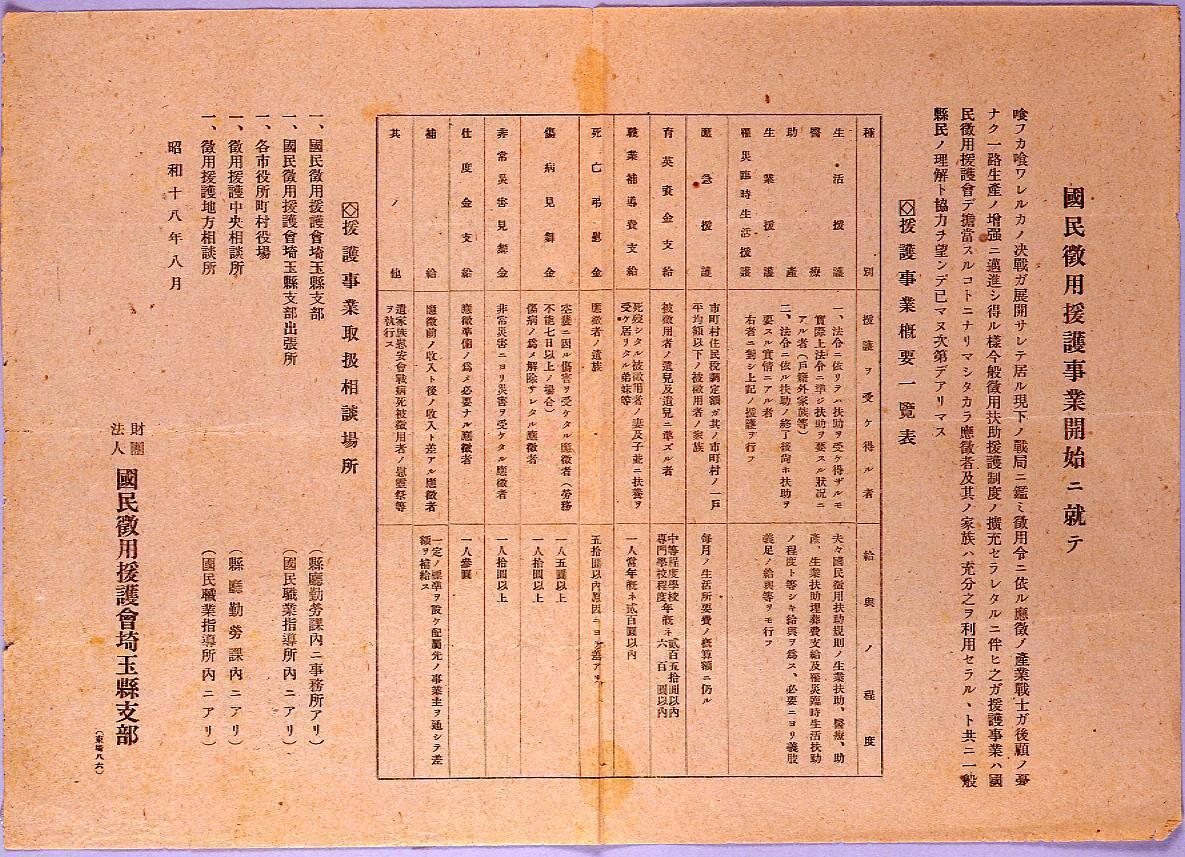 國民徵用援護事業開始ニ就テ
喰フカ喰ワレルカノ決戰ガ展開サレテ居ル現下ノ戰局ニ鑑ミ徵用令ニ依ル應徵ノ產業戰士ガ後顧ノ憂
ナク一路生產ノ增强ニ邁進シ得ル樣今般徵用扶助援護制度ノ擴充セラレタルニ伴ヒ之ガ援護事業ハ國
民徵用援護會デ擔當スルコトニナリマシタカラ應徵者及其ノ家族ハ充分之ヲ利用セラル、ト共ニ一般
縣民ノ理解ト協力ヲ望ンデ已マヌ次第デアリマス
◇援護事業槪要一覽表
種別
援護ヲ受ケ得ル者
給與ノ程度
生活援護
醫療
助產
生業援護
罹災臨時生活援護
一、法令ニ依リテハ扶助ヲ受ケ得ザルモ
實際上法令ニ準ジ扶助ヲ要スル狀況ニ
アル者(戶籍外家族等)
二、法令ニ依ル扶助ノ終了後尚ホ扶助ヲ
要スル實情ニアル者
右者ニ對シ上記ノ援護ヲ行フ
夫々國民徵用扶助規則ノ生業扶助、醫療、助
產、生業扶助埋葬費支給及罹災臨時生活扶助
ノ程度ト等シキ給與ヲ爲ス、必要ニヨリ義肢
義足ノ給與等ヲモ行フ
應急援護
市町村住民稅調定額ガ其ノ市町村ノ一戶
平均額以下ノ被徵用者ノ家族
每月ノ生活所要費ノ槪算額ニ仍ル
育英資金支給
被徵用者ノ遺兒及遺兒ニ準ズル者
中等程度學校年槪ネ貳百五拾圓以內
專門學校程度年槪ネ六百圓以內
職業補導費支給
死歿シタル被徵用者ノ妻及子並ニ扶養ヲ
受ケ居リタル弟妹等
一人當年槪ネ貳百圓以內
死亡弔慰金
應徵者ノ遺族
五拾圓以內原因ニヨリ差アリ
傷病見舞金
空襲ニ因ル傷害ヲ受ケタル應徵者(勞務
不能七日以上ノ場合)
傷病ノ爲メ解除サレタル應徵者
一人五圓以上
一人拾圓以上
非常災害見舞金
非常災害ニヨリ災害ヲ受ケタル應徵者
一人拾圓以上
仕度金支給
應徵準備ノ爲メ必要ナル應徵者
一人參圓
補給
應徵前ノ收入ト後ノ收入ト差アル應徵者
一定ノ標準ヲ設ケ配屬先ノ事業主ヲ通シテ差
額ヲ補給ス
其ノ他
遺家族慰安會戰病死被徵用者ノ慰靈祭等
ヲ執行ス
◇援護事業取扱相談場所
一、國民徵用援護會埼玉縣支部(縣廳勤勞課內ニ事務所アリ)
一、國民徵用援護會埼玉縣支部出張所(國民職業指導所內ニアリ)
一、各市役所町村役場
一、徵用援護中央相談所(縣廳勤勞課內ニアリ)
一、徵用援護地方相談所(國民職業指導所內ニアリ)
昭和十八年八月
財團法人 國民徵用援護會埼玉縣支部